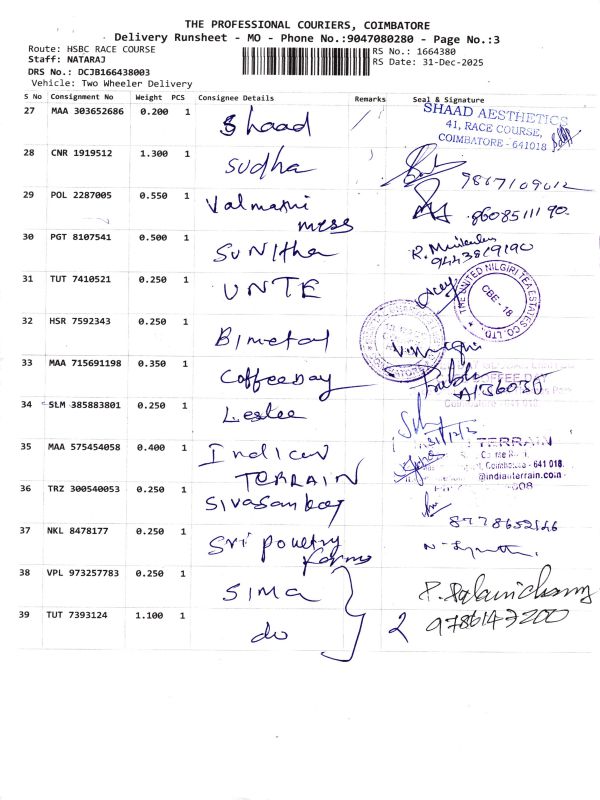 THE PROFESSIONAL COURIERS, COIMBATORE
Delivery Runsheet - MO - Phone No.:9047080280 - Page No.:3
Route: HSBC RACE COURSE
Staff: NATARAJ
DRS No.: DCJB166438003
Vehicle: Two Wheeler Delivery
RS No.: 1664380
RS Date: 31-Dec-2025
S No Consignment No Weight PCS Consignee Details Remarks Seal & Signature
27 MAA 303652686 0.200 1 Shaad
SHAAD AESTHETICS
41, RACE COURSE,
COIMBATORE - 641018
28 CNR 1919512 1.300 1 Sudha
29 POL 2287005 0.550 1 Valmathi mess 8608511190.
30 PGT 8107541 0.500 1 SuNitha
31 TUT 7410521 0.250 1 UNTE
THE UNITED NILGIRI TEA ESTATES CO. LTD.
CBE - 18
32 HSR 7592343 0.250 1 Bimetal
33 MAA 715691198 0.350 1 Coffee Day
34 SLM 385883801 0.250 1 Leslee
35 MAA 575454058 0.400 1 Indican TERRAIN
TERRAIN
Coimbatore - 641 018.
@indianterrain.com
36 TRZ 300540053 0.250 1
37 NKL 8478177 0.250 1 Sri poultry Farms
38 VPL 973257783 0.250 1 SIMA
39 TUT 7393124 1.100 1 do 2
9786147200